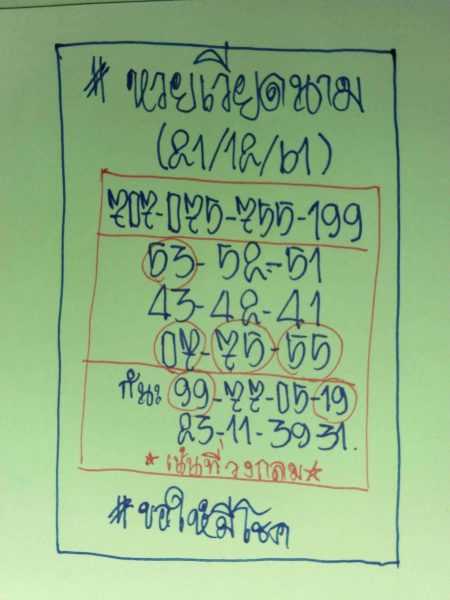 # หวยเวียดนาม
(21/12/61)
707-075-755-199
53-52-51
43-42-41
07-75-55
กัน: 99-77-05-19
23-11-39 31.
*เน้นที่วงกลม*
#ขอให้มีโชค